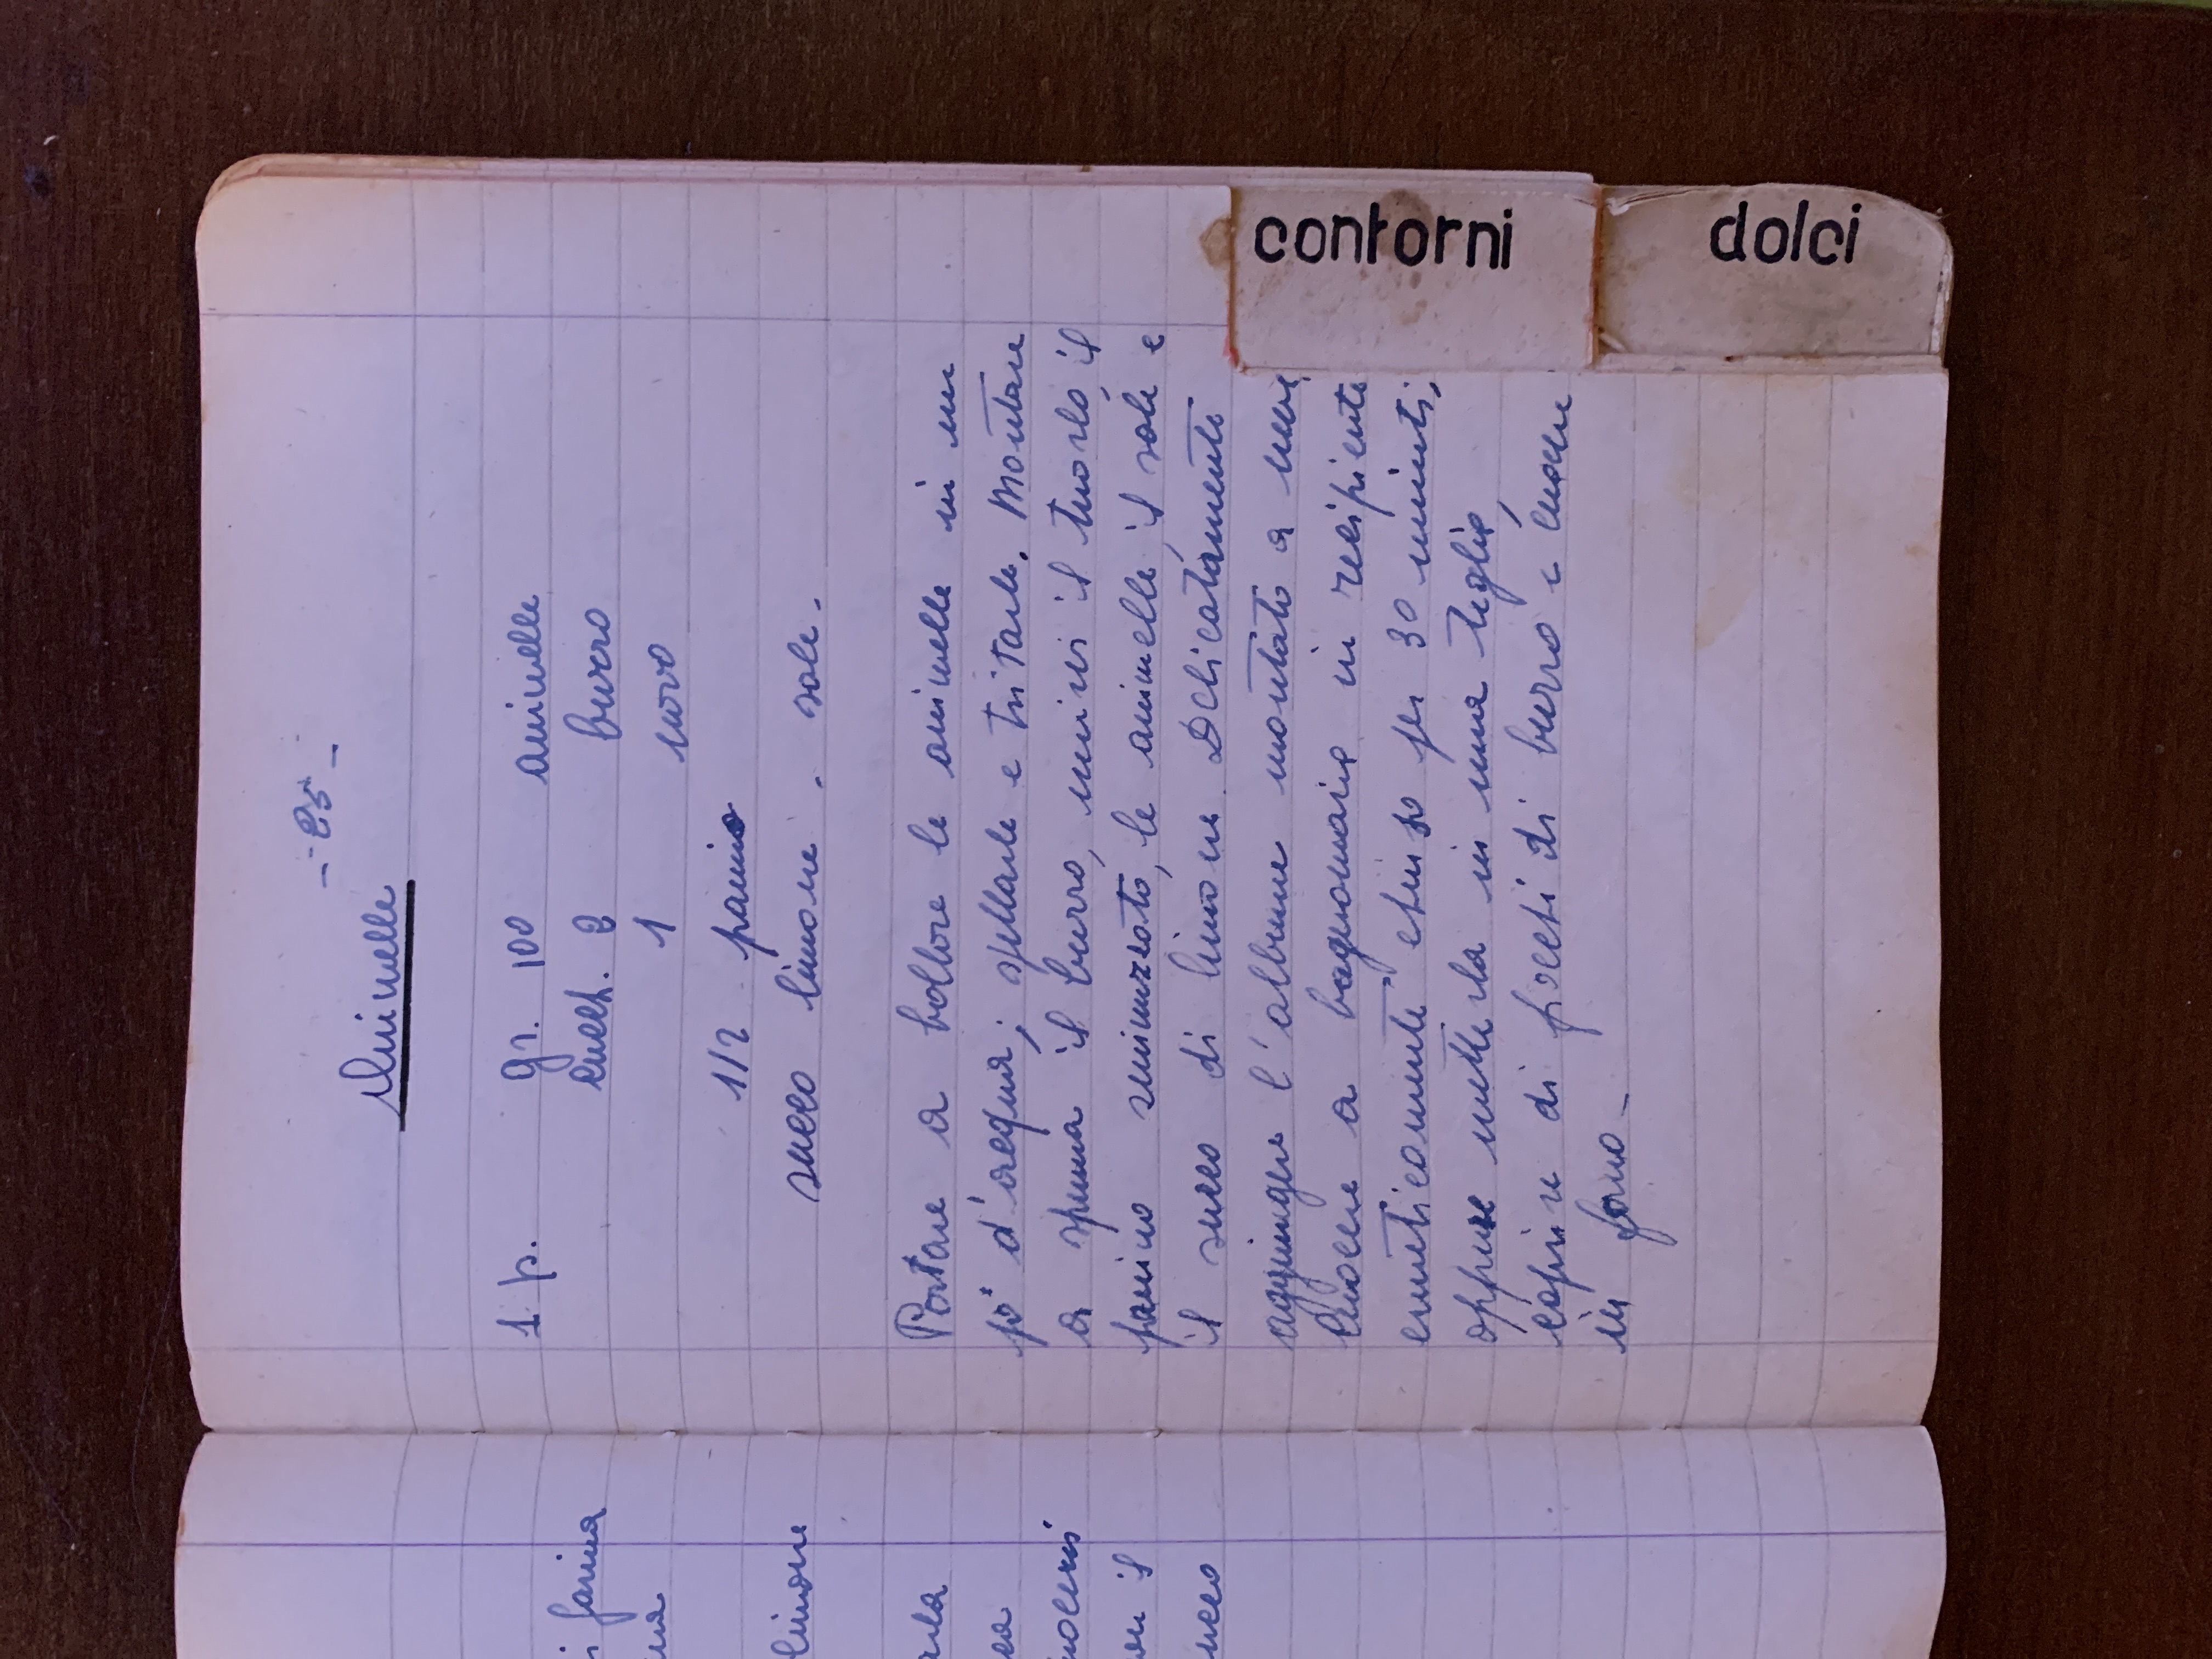 i farina
limone
arla
on il
succo
- 25 -
Animelle
1 p. gr. 100 animelle
cucch. 2 burro
1 uovo
1/2 panino
succo limone - sale -
Portare a bollore le animelle in un
pò d'acqua; spellarle e tritarle. Montare
a spuma il burro, unirvi il tuorlo, il
panino sminuzzato, le animelle, il sale e
il succo di limone. Delicatamente
aggiungere l'albume montato a neve.
Cuocere a bagnomaria in recipiente
ermeticamente chiuso per 30 minuti,
oppure metterla in una teglia,
coprire di fiocchi di burro e cuocere
in forno -
contorni
dolci